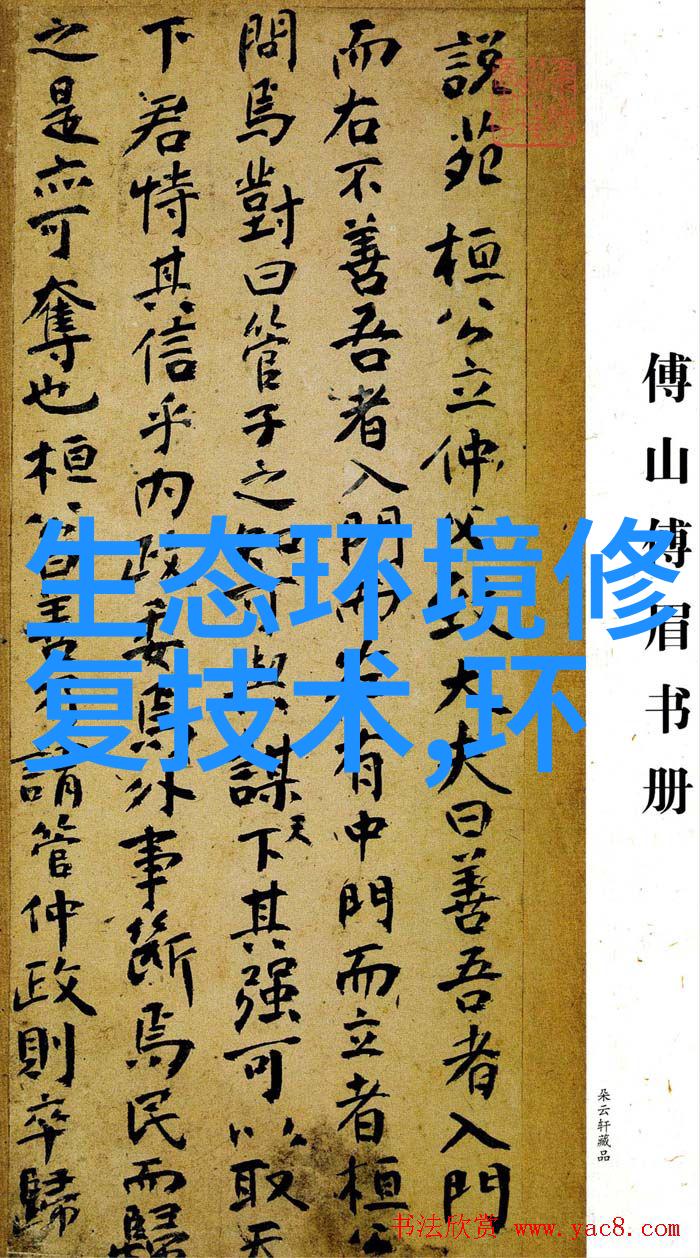 說苑 桓公立仲父致大夫曰善吾者入門
而右不善吾者入門而左有中門而立者桓公
問焉對曰管子之知可與謀天下其强可以取天
下君恃其信乎内政委焉外事斷焉民而歸
之是亦可奪也桓公曰善不謂管仲政則卒歸
傅山傅眉书册
朵云轩藏品
生态环境修
复技术,环
书法欣赏 www.yac8.com